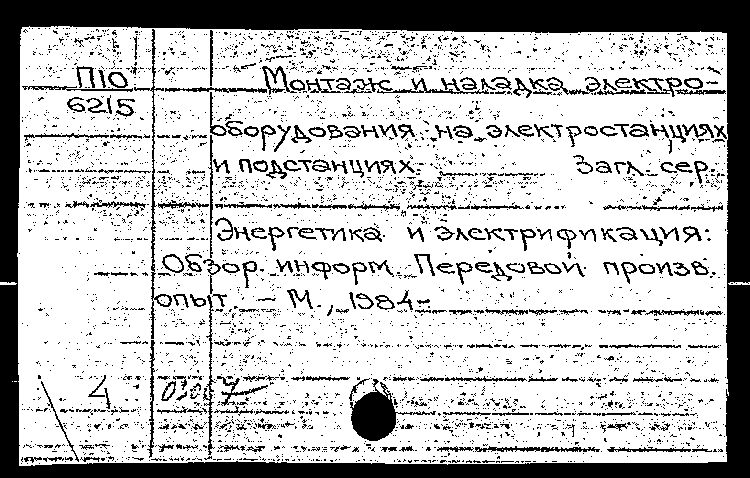 П10 Монтаж и наладка электро-
6215
оборудования на электростанциях
и подстанциях. Загл. сер.
Энергетика и электрификация:
Обзор. информ. Передовой произв.
опыт. – М., 1984-
4